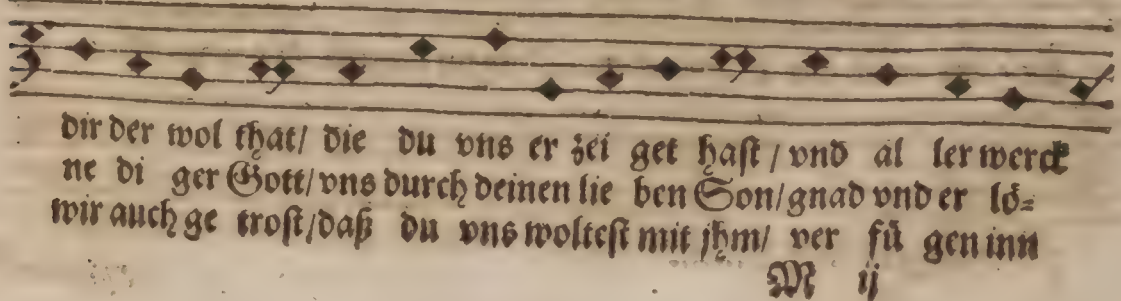 dir der wol that/ die du vns er zei get hast / vnd al ler werck
ne di ger Gott/ vns durch deinen lie ben Son/ gnad vnd er lö⸗
wir auch ge trost/ daß du vns woltest mit jhm/ ver fü gen inn
M ij